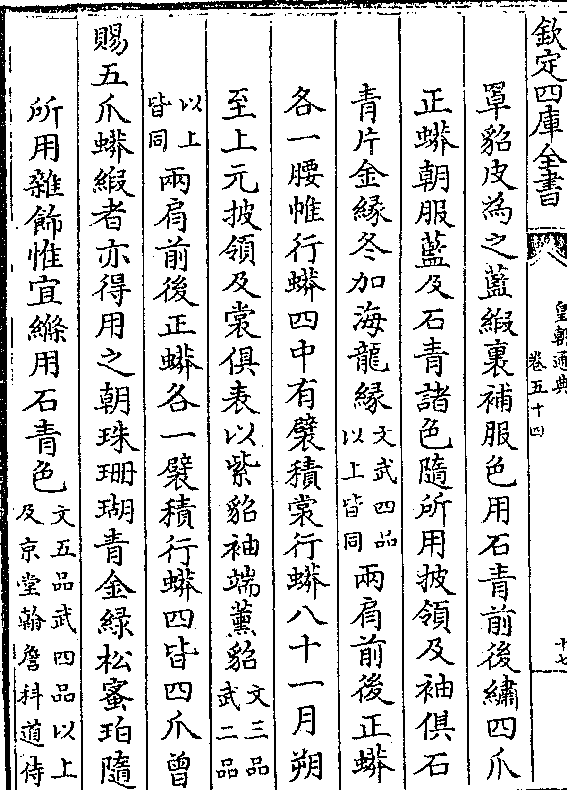 欽定四庫全書
皇朝通典
卷五十四
十七
罩貂皮為之藍緞裏補服色用石青前後繡四爪
正蟒朝服藍及石青諸色隨所用披領及袖俱石
青片金緣冬加海龍緣文武四品以上皆同兩肩前後正蟒
各一腰帷行蟒四中有襞積裳行蟒八十一月朔
至上元披領及裳俱表以紫貂袖端薰貂文三品武二品
以上皆同兩肩前後正蟒各一襞積行蟒四皆四爪曾
賜五爪蟒緞者亦得用之朝珠珊瑚青金綠松蜜珀隨
所用雜飾惟宜縧用石青色文五品武四品以上及京堂翰詹科道侍